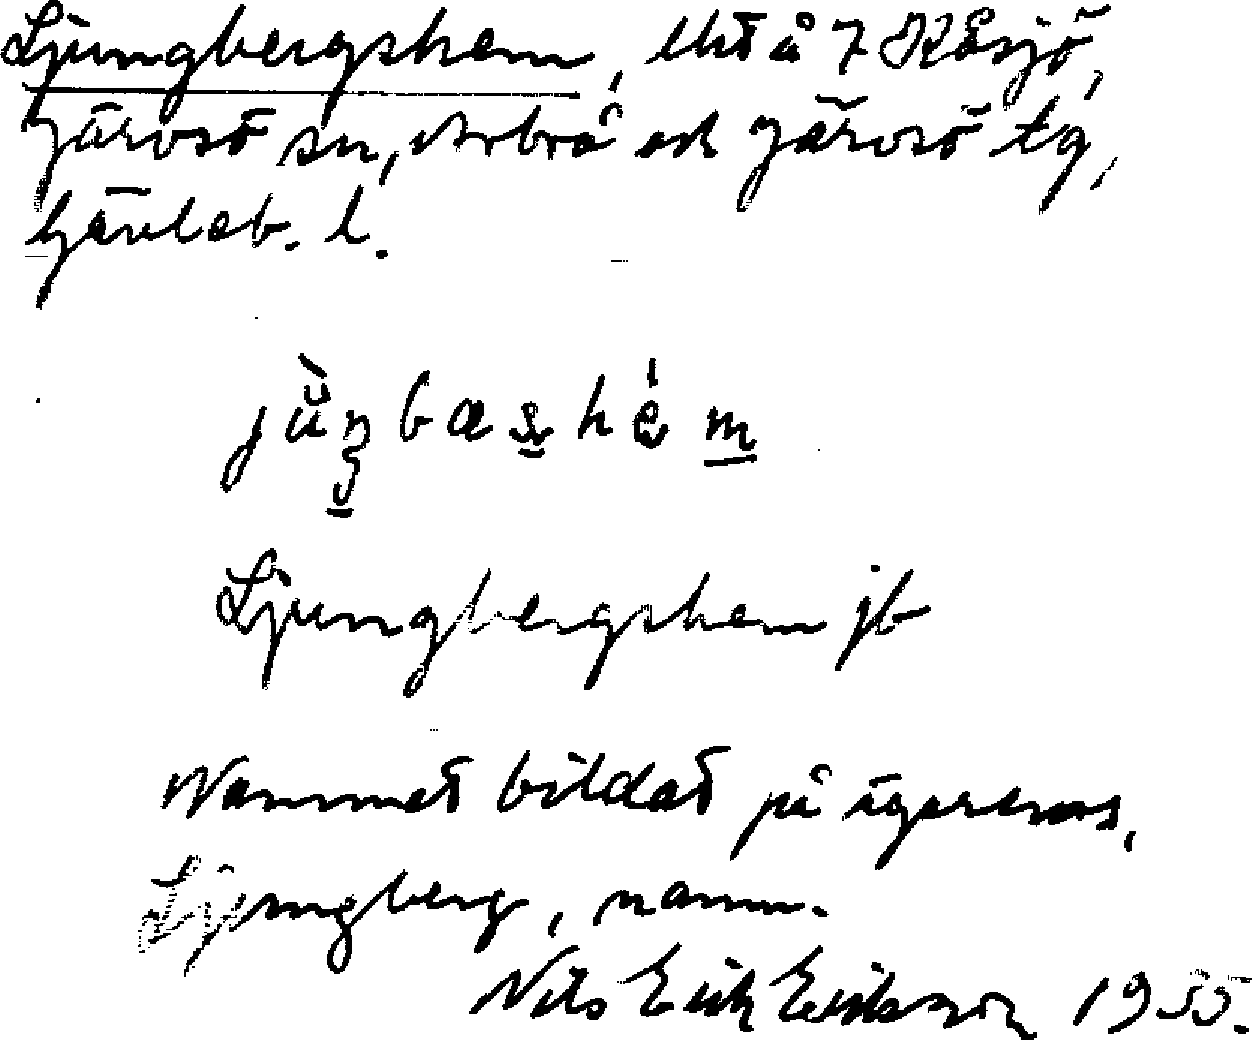 Ljungbergshem, lht å 7 Kåsjö,
Järvsö sn, Arbrå och Järvsö tg,
Gävleb. l.
Ljungbergshem jb
Namnet bildat på ägarens,
Ljungberg, namn.
Nils Erik Eriksson 1955.